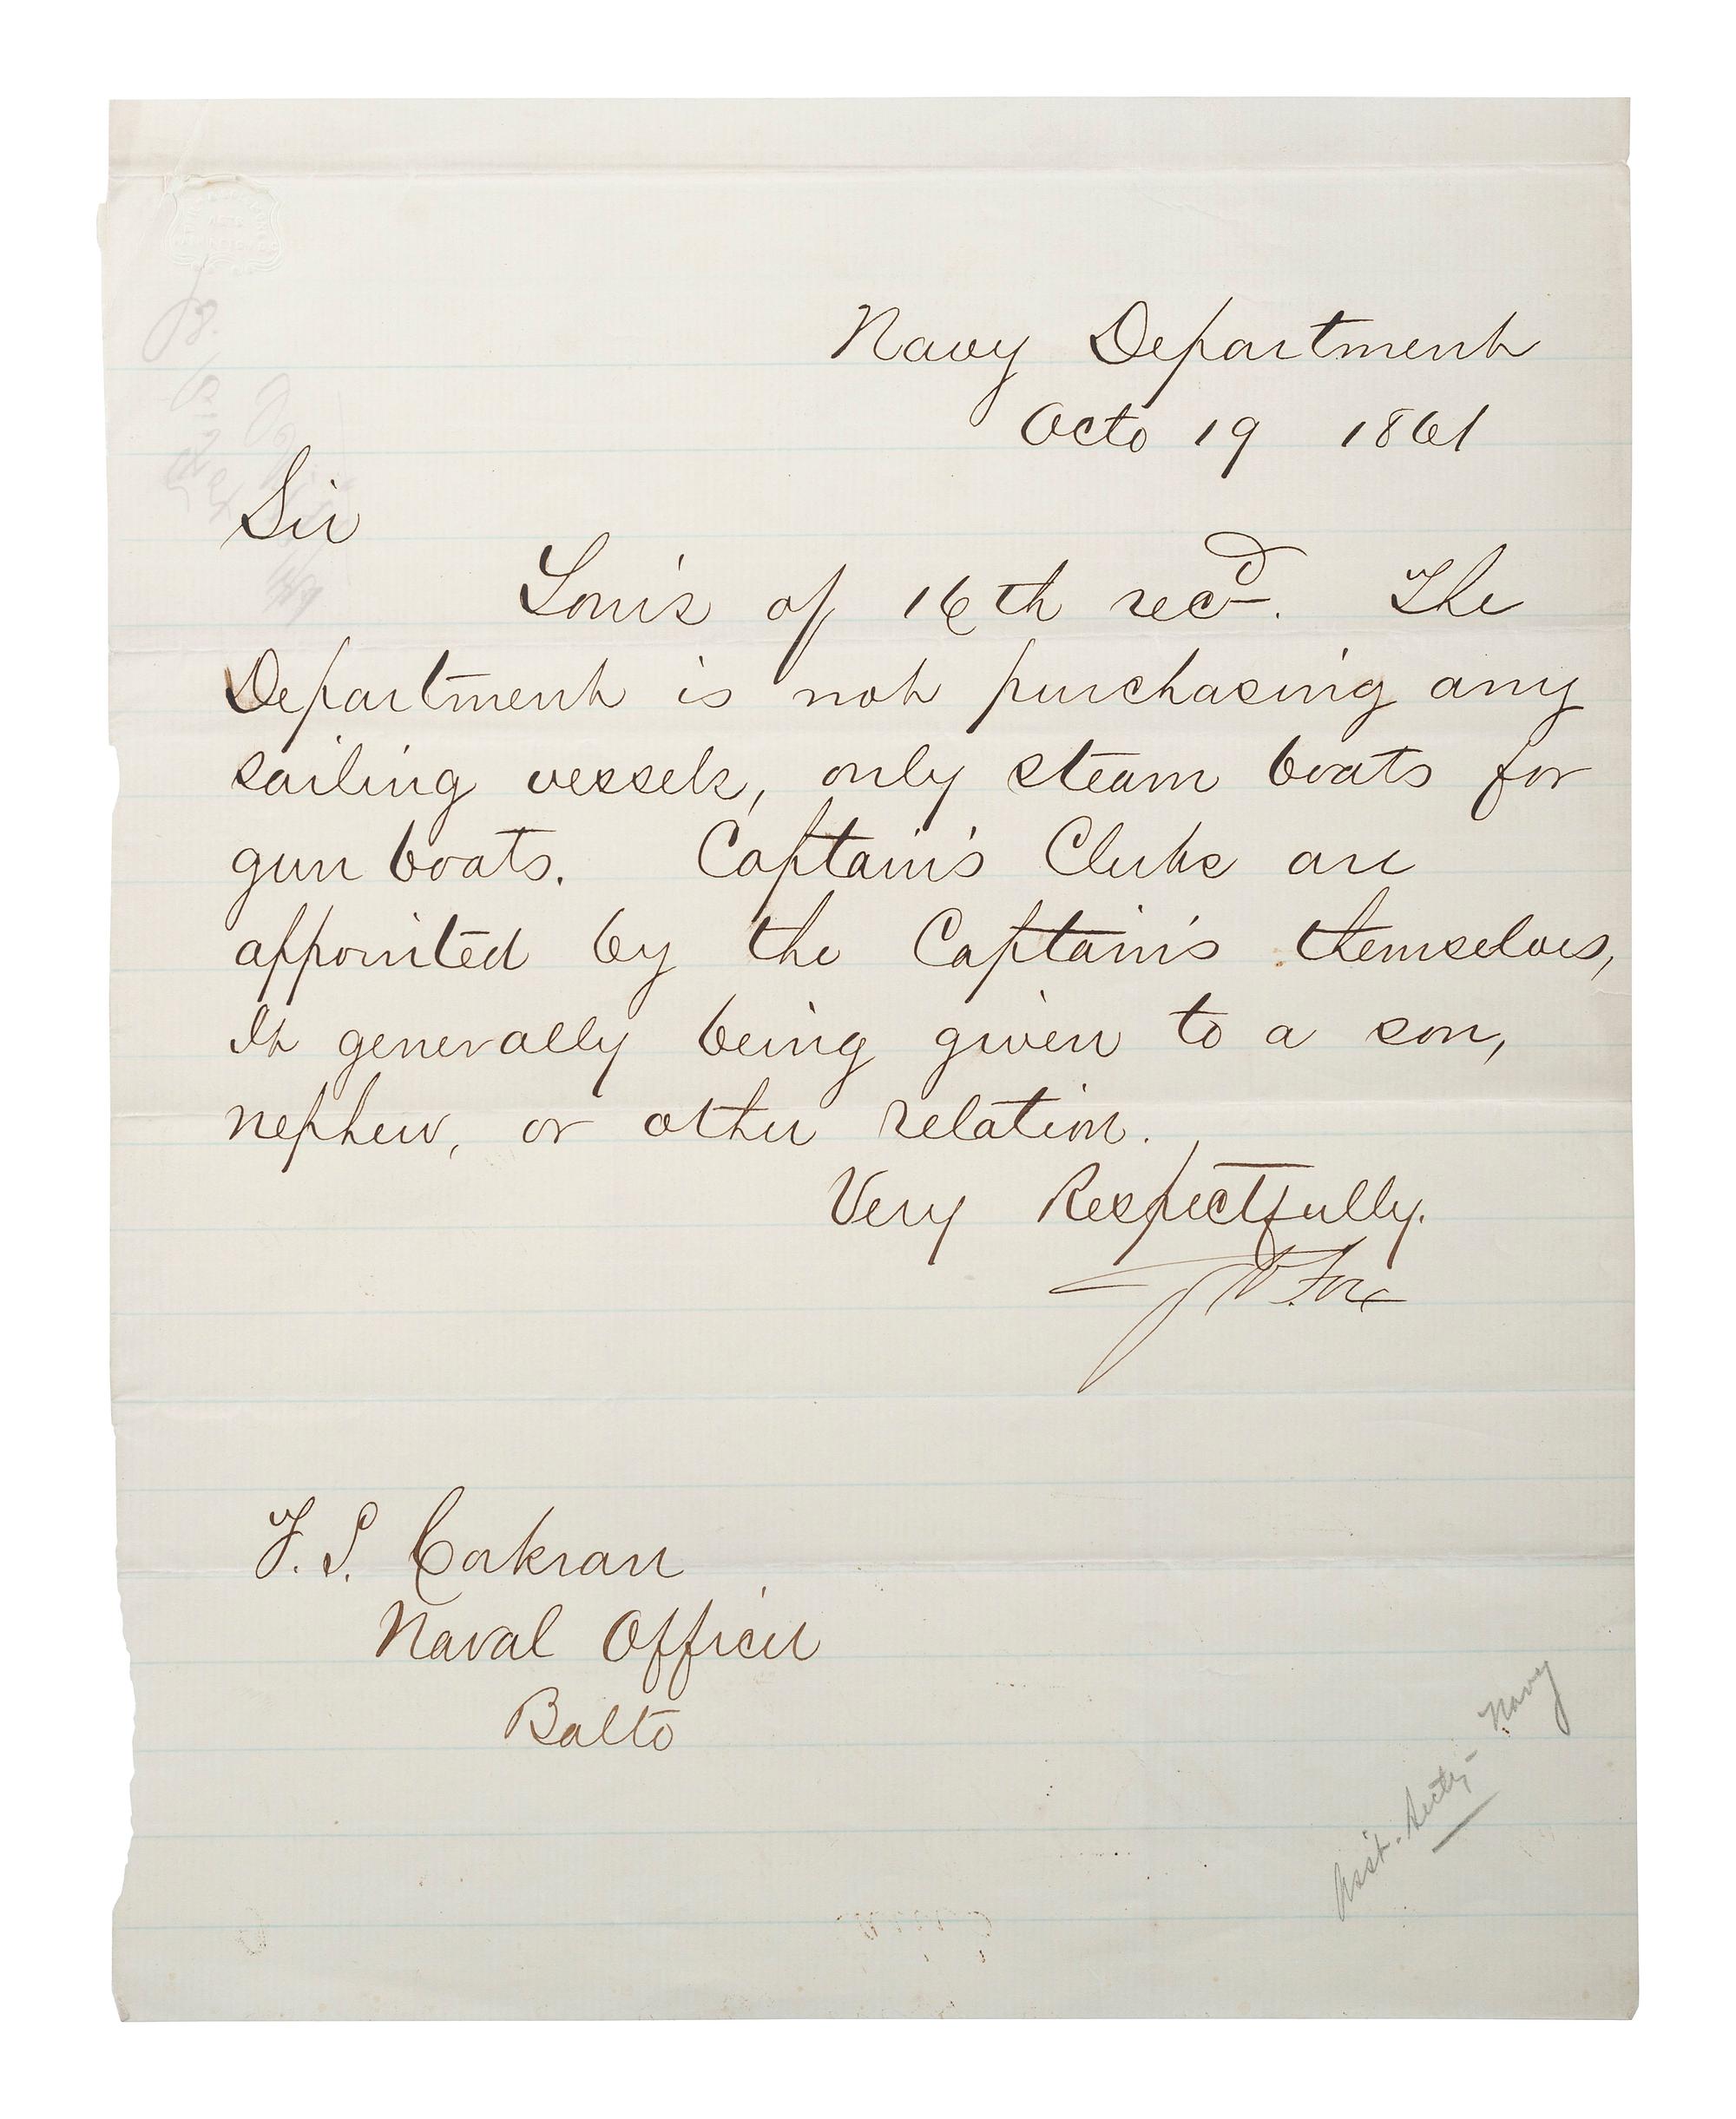 Navy Department
Octo 19 1861
Sir
Yours of 16th recd. The
Department is not purchasing any
sailing vessels, only steam boats for
gun boats. Captain's Clerks are
appointed by the Captains themselves,
It generally being given to a son,
nephew, or other relation.
Very Respectfully.
G V. Fox
F. S. Corkran
Naval Officer
Balto
Asst. Secty Navy